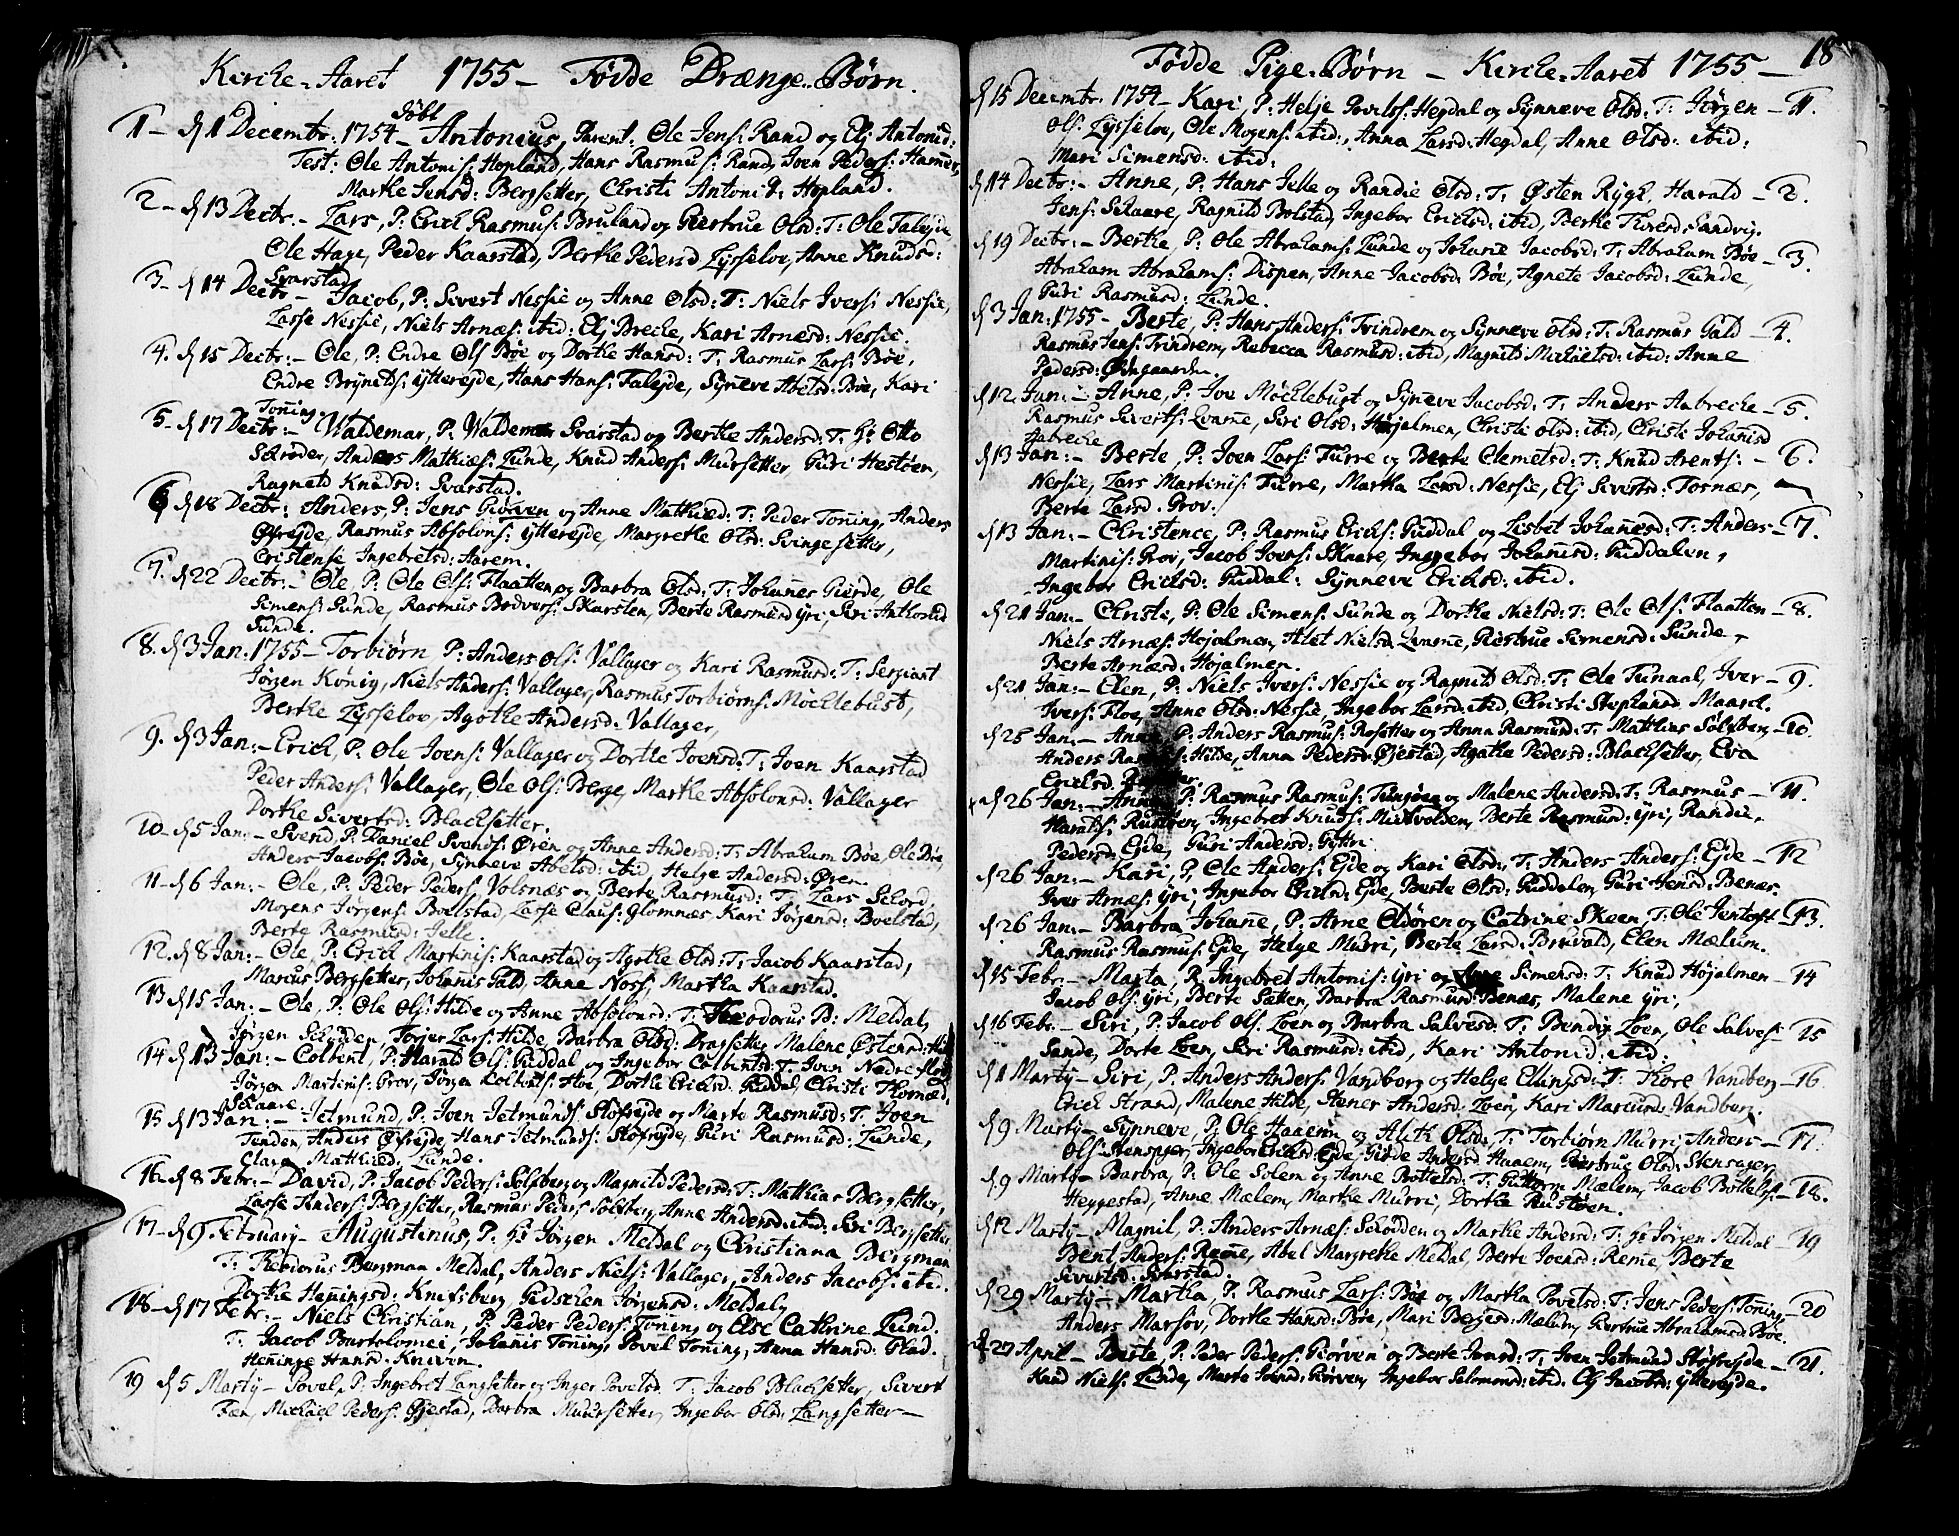 Kirche-Aaret 1755 - Fødde Drænge-Børn.
Døbt
1 - d 1 Decembr: 1754 - Antonius, Parent: Ole Jens: Rand og Elj Antonid:
Test: Ole Antonis: Hopland, Hans Rasmus: Rand, Joen Peders: Hamer,
Marthe Jensd: Bergsetter, Christi Antonid: Hopland.
2 - d 13 Decbr. - Lars, P: Erich Rasmus: Bruland og Giertrue Olsd: T: Ole Talejde,
Ole Hage, Peder Kaarstad, Berthe Pedersd Lysselov, Anne Knudsd:
Svarstad
3 - d 14 Decbr - Jacob, P: Sivert Nessie og Anne Olsd: T: Niels Ivers: Nessie,
Lasse Nessie, Niels Arnæs: ibid: Elj Breche, Kari Arnæsd: Nessie.
4. d 15 Decbr: - Ole, P: Endre Ols: Bøe og Dorthe Hansd: T: Rasmus Lars: Bøe,
Endre Brynilds: ytterejde, Hans Hans: Talejde, Synneve Abelsd: Bøe, Kari
Toning.
5. d 17 Decbr: - Waldemar, P: Waldemar Svarstad og Berthe Andersd: T: Hr: Otto
Schrøder, Anders Mathiæs: Lunde, Knud Anders: Mursetter, Guri Hestøen,
Ragnild Knudsd: Svarstad.
6 d 18 Decbr: Anders, P: Jens Giørven og Anne Mathiæd: T: Peder Toning, Anders
Øfrejde, Rasmus Absolons: ytterejde, Margrethe Olsd: Svingesetter,
Cristense Ingebretsd: Aarem.
7. d 22 Decbr: - Ole, P: Ole Ols: Flaatten og Barbra Olsd: T: Johannes Gierde, Ole
Simens: Sunde, Rasmus Bodvers: Skarsten, Berte Rasmusd yri, Siri Anthonid
Sunde.
8. d 3 Jan: 1755 - Torbiørn P: Anders Ols: Vallager og Kari Rasmusd: T: Sergiant
Jørgen König, Niels Anders: Vallager, Rasmus Torbiørns: Mochlebust,
Berthe Lysselov, Agothe Andersd: Vallager,
9. d 3 Jan: - Erich, P: Ole Joens: Vallager og Dorthe Joensd: T: Joen Kaarstad
Peder Anders: Vallager, Ole Ols: Berge, Marthe Absolonsd: Vallager
Dorthe Sivertsd: Blachsetter.
10 - d 5 Jan: - Svend, P: Daniel Svends: Øren og Anne Andersd: T: Abraham Bøe, Ole Bøe,
Anders Jacobs: Bøe, Synneve Abelsd: ibid, Helge Andersd: Øren.
11 - d 6 Jan: - Ole, P: Peder Peders: Volsnæs og Berte Rasmusd: T: Lars Schord,
Mogens Jørgens: Boelstad, Lasse Claus: Glomnæs, Kari Jørgensd: Boelstad,
Berte Rasmusd: Jelle.
12. d 8 Jan: - Ole, P: Erich Martinis: Kaarstad og Agothe Olsd: T: Jacob Kaarstad,
Marcus Bergsetter, Johanis Gald, Anne Noss, Martha Kaarstad.
13 d 15 Jan: - Ole, P: Ole Ols: Hilde og Anne Absolonsd: T: Theodorus B: Meldal,
Jørgen Schejdden, Torjer Lars: Hilde, Barbra Olsd: Dragsetter, Malene Østensd:
14 - d 13 Jan: - Colbent, P: Harald Ols: Guddal og Ingebor Colbentsd: T: Iven Nedreflod
Jørgen Martinis: Grov, Jørgen Colbents: Hoe, Dorthe Ericsd: Guddal, Christi Thomæd:
Schaare
15 d 13 Jan: - Jetmund, P: Joen Jetmunds: Støfrejde og Marte Rasmusd: T: Joen
Tenden, Anders Øfrejde, Hans Jetmunds: Støfrejde, Guri Rasmusd: Lunde,
Clara Mathiæd: Lunde.
16. d 8 Febr: - David, P: Jacob Peders: Solfberg og Magnild Pedersd: T: Mathias Bergsetter,
Lasse Anders: Bergsetter, Rasmus Peders: Solfberg, Anne Andersd: ibid: Siri Bergsetter
17 - d 9 February - Augustinus, P: Hr: Jørgen Meldal og Christianna Bergman
T: Theodorus Bergman Meldal, Anders Niels: Vallager, Anders Jacobs: ibid.
Dorthe Heningsd: Knutsberg Gidschen Jørgensd: Meldal,
18 - d 17 Febr: - Niels Christian, P: Peder Peders: Toning og Else Cathrine Lund.
T: Jacob Bartolomei, Johanis Toning, Povel Toning, Anna Hansd: Glad.
Heninge Hansd: Kniven.
19 d 5 Marty - Povel, P: Ingebret Langsetter og Inger Povelsd: T: Jacob Blachsetter, Sivert
Fæn, Michael Peders: Øjestad, Barbra Muursetter, Ingebor Olsd: Langsetter -
Fødde Pige-Børn - Kirche-Aaret 1755 - 18
d 15 Decembr: 1754 - Kari, P: Helje Povels: Hegdal og Synneve Olsd: T: Jørgen - 1.
Ols: Lysselov, Ole Mogens: ibid:, Anna Larsd: Hegdal, Anne Olsd: ibid:
Mari Simensd: ibid:
d 14 Decbr: - Anne, P: Hans Jelle og Randie Olsd: T: Østen Rygh, Harald - 2.
Jens: Schaare, Ragnild Bolstad, Ingebor Erichsd: ibid, Berthe Thoresd: Sandvig.
d 19 Decbr: - Berthe, P: Ole Abrahams: Lunde og Johanne Jacobsd: T: Abraham Bøe - 3.
Abraham Abrahams: Dispen, Anne Jacobsd Bøe, Agnete Jacobsd: Lunde,
Guri Rasmusd: Lunde.
d 3 Jan: 1755 - Berte, P: Hans Anders: Tvindrem og Synneve Olsd: T: Rasmus Gald - 4.
Rasmus Jens: Tvindrem, Rebecca Rasmusd: ibid, Magnild Michelsd: ibid: Anne
Pedersd: Øvregaarden.
d 12 Jan: - Anne, P: Joe Møchlebust og Syneve Jacobsd: T: Anders Aabreche - 5.
Rasmus Siverts: Qvame, Siri Olsd: Hojalmen, Christi Olsd: ibid, Christi Johanisd
Aabreche
d 13 Jan: - Berte, P: Joen Lars: Furre og Berte Clemetsd: T: Knud Arents: - 6.
Nessie, Lars Martinis: Furre, Martha Larsd: Nessie, Elj Sivertsd: Tosnæs,
Berte Larsd: Grov.
d 13 Jan: - Christence, P: Rasmus Erichs: Guddal og Lisbet Johanesd: T: Anders - 7.
Martinis: Grov, Jacob Joens: Skaare, Ingebor Johanisd: Guddalen,
Ingebor Erichsd: Guddal: Synneve Erichsd: ibid.
d 21 Jan: - Christi, P: Ole Simens: Sunde og Dorthe Nielsd: T: Ole Ols: Flaatten - 8.
Niels Arnæs: Hojalmen, Alet Nielsd: Qvame, Giertrue Simensd: Sunde,
Berte Arnæsd: Hojalmen.
d 21 Jan: - Elen, P: Niels Ivers: Nessie og Ragnild Olsd: T: Ole Tunaal, Iver - 9.
Ivers: Floe, Anne Olsd: Nessie, Ingebor Larsd: ibid, Christi Stephansd Maarel.
d 25 Jan: - Anne P: Anders Rasmus: Rosetter og Anna Rasmusd: T: Mathias Solfberg - 10.
Anders Hilde, Anna Pedersd: Øjestad, Agathe Pedersd: Blachsetter, Eva
Erichsd:
d 26 Jan: - Anne P: Rasmus Rasmus: Tungøen og Malene Andersd: T: Rasmus - 11.
Haralds: Rustøen, Ingebret Knuds: Mictvolsen, Berte Rasmusd: yri, Randie,
Pedersd: Ejde, Guri Andersd: Gyttri
d 26 Jan: - Kari, P, Ole Anders: Ejde og Kari Olsd: T: Anders Anders: Ejde - 12
Iver Arnæs: yri, Ingebor Erichsd: Ejde, Berte Olsd: Guddalen, Guri Jensd: Benæs.
d 26 Jan - Barbra Johane, P: Arne Oldøren og Catrine Skeen, T: Ole Jentoft 13.
Rasmus Rasmus: Ejde, Helge Murri, Berte Larsd: Bruvald, Elen Mælum.
d 15 Febr. - Marta, P: Ingebret Antonis: yri og Anne Simensd: T: Knud Hojalmen - 14
Jacob Ols: yri, Berte Sætten, Barbra Rasmusd: Benæs, Malene yri,
d 16 Febr: - Siri, P: Jacob Ols: Loen og Barbra Salvesd: T: Bendix Loen, Ole Salves: 15
Sande, Dorte Loen, Siri Rasmusd: ibid, Kari Antonid: ibid:
d 1 Marty - Siri, P: Anders Anders: Vandberg og Helge Ellingsd: T: Thore Vandberg - 16.
Erich Strand, Malene Hilde, Stener Andersd: Loen, Kari Mariusd: Vandberg.
d 9 Marty - Synneve, P: Ole Haaem og Alith Olsd: T: Torbiørn Murri, Anders - 17.
Ols: Stensager, Ingebor Erichsd: Ejde, Giøde Andersd: Haaem, Giertrue Olsd: Stensager,
d 9 Marty - Barbra, P: Ole Solem og Anne Bottelsd: T: Guttorm Mælem, Jacob Bottels: 18.
Heggestad, Anne Mælem, Marthe Murri, Dorthe Rustøen.
d 12 Marty - Magnil, P: Anders Arnæs: Schrødden og Marthe Andersd: T: Hr: Jørgen Meldal - 19
Bent Anders: Reme, Abel Margrethe Meldal, Berte Joensd: Reme, Berte
Sivertsd: Svarstad.
d 29 Marty - Martha, P: Rasmus Lars: Bøe og Martha Povelsd: T: Jens Peders: Toning, 20
Anders Marsøv, Dorthe Hansd: Bøe, Mari Bergesd: Mælum, Giertrue Abrahamsd: Bøe.
d 27 April - Berte, P: Peder Peders: Giørven og Berte Ivarsd: T: Joen Jetmund Støfrejde - 21.
Knud Niels: Lunde, Marte Joensd: Giørven, Ingebor Solomonsd: ibid. Elj Jacobsd: ytterejde.